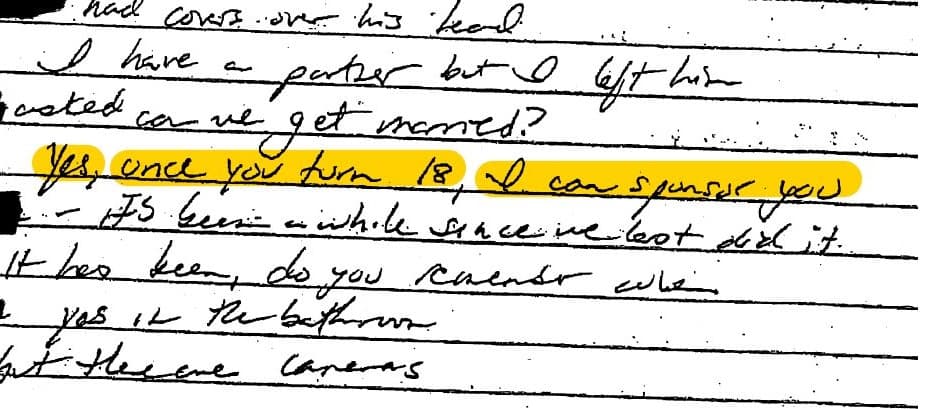 had covers over his head
I have a partner but I left him
asked can we get married?
Yes, once you turn 18, I can sponsor you
- It's been a while since we last did it.
It has been, do you remember when
yes in the bathroom
but there are cameras